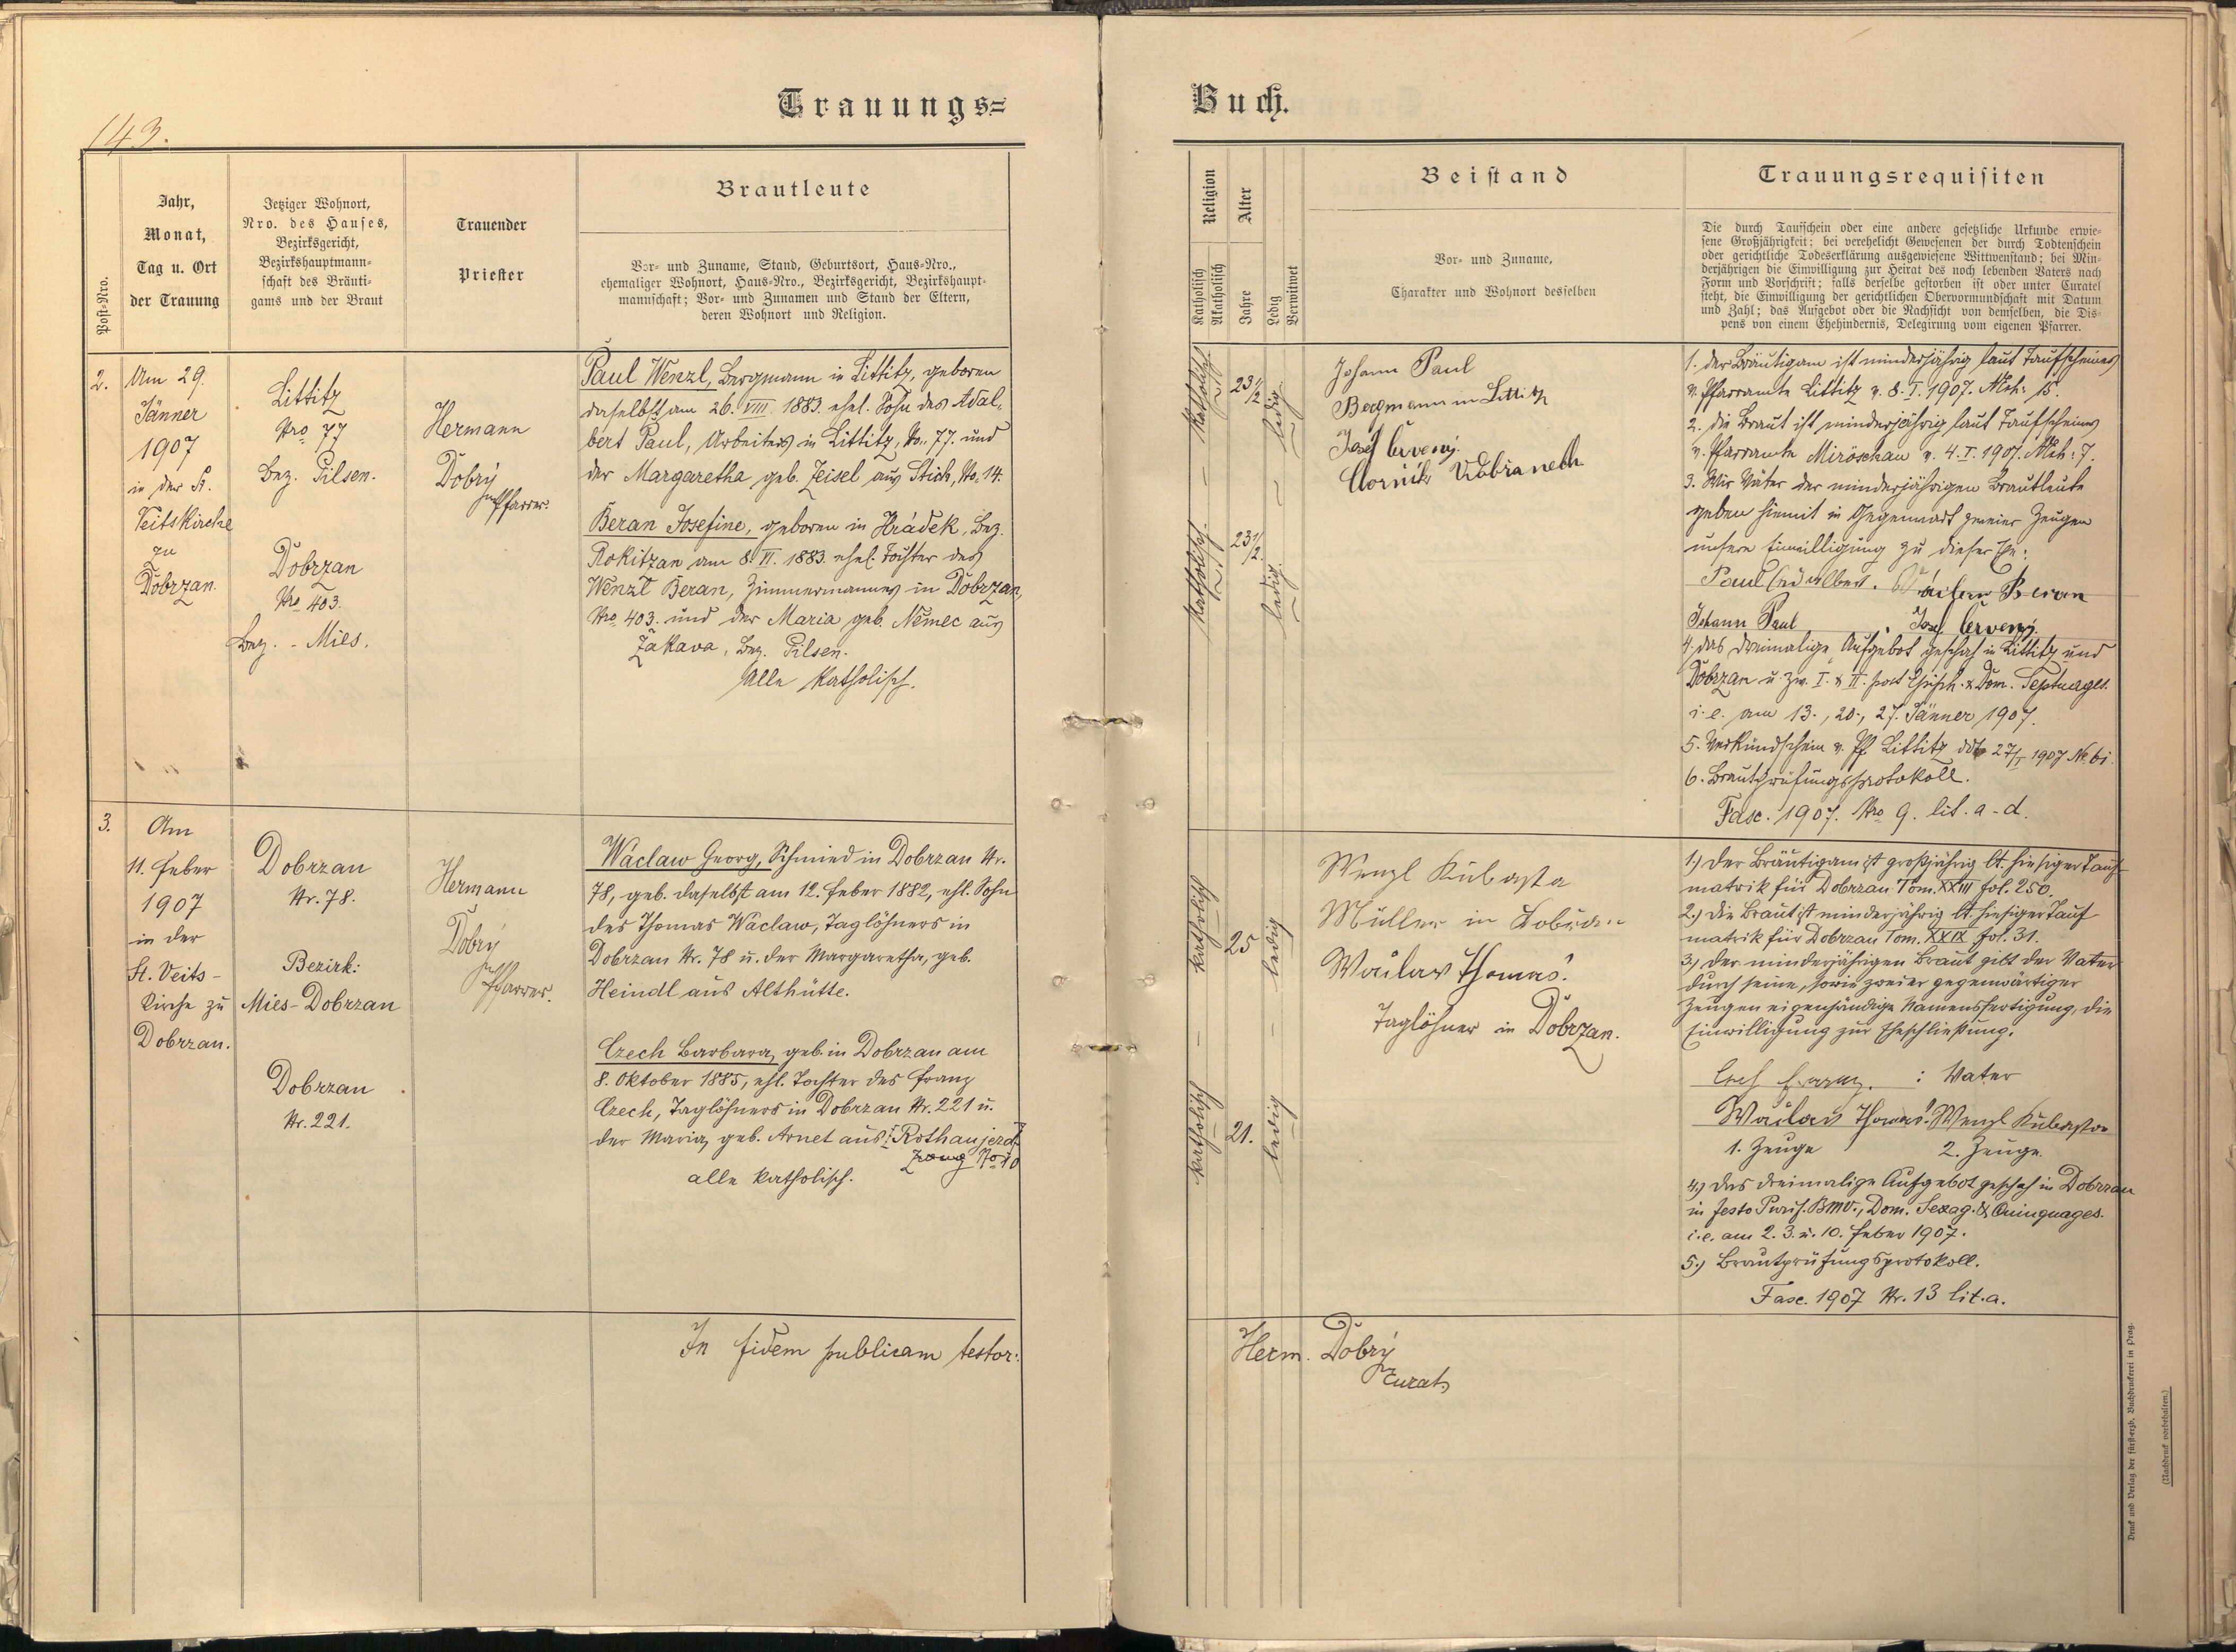 Trauungs=
Buch.
143.
Post-Nro.
Jahr,
Monat,
Tag u. Ort
der Trauung
Jetziger Wohnort,
Nro. des Hauses,
Bezirksgericht,
Bezirkshauptmann=
schaft des Bräuti=
gams und der Braut
Trauender
Priester
Brautleute
Vor- und Zuname, Stand, Geburtsort, Haus-Nro.,
ehemaliger Wohnort, Haus-Nro., Bezirksgericht, Bezirkshaupt-
mannschaft; Vor- und Zunamen und Stand der Eltern,
deren Wohnort und Religion.
Religion
Katholisch
Akatholisch
Alter
Jahre
Ledig
Verwitwet
Beistand
Vor- und Zuname,
Charakter und Wohnort desselben
Trauungsrequisiten
Die durch Taufschein oder eine andere gesetzliche Urkunde erwie-
sene Großjährigkeit; bei verehelicht Gewesenen der durch Todtenschein
oder gerichtliche Todeserklärung ausgewiesene Wittwenstand; bei Min-
derjährigen die Einwilligung zur Heirat des noch lebenden Vaters nach
Form und Vorschrift; falls derselbe gestorben ist oder unter Curatel
steht, die Einwilligung der gerichtlichen Obervormundschaft mit Datum
und Zahl; das Aufgebot oder die Nachsicht von demselben, die Dis-
pens von einem Ehehindernis, Delegirung vom eigenen Pfarrer.
2.
Am 29.
Jänner
1907
in der St.
Veitskirche
zu
Dobrzan.
Littitz
Nro 77
Bez. Pilsen.
Dobrzan
Nro 403.
Bez. - Mies.
Hermann
Dobrý
Pfarrer.
Paul Wenzl, Bergmann in Littitz, geboren
daselbst am 26. VIII. 1883. ehel. Sohn des Adal-
bert Paul, Arbeiters in Littitz, No. 77. und
der Margaretha geb. Zeisel aus Stich, No. 14.
Beran Josefine, geboren in Hrádek, Bez.
Rokitzan am 8. VI. 1883. ehel. Tochter des
Wenzl Beran, Zimmermannes in Dobrzan,
Nro. 403. und der Maria geb. Němec aus
Žákava, Bez. Pilsen.
Alle katholisch.
katholisch
23 1/2
ledig
katholisch.
23 1/2.
ledig.
Johann Paul
Bergmann in Littitz
Josef Červený.
1. der Bräutigam ist minderjährig laut Taufscheines
v. Pfarramte Littitz v. 8. I. 1907. Mch: 15.
2. die Braut ist minderjährig laut Taufscheines
v. Pfarramte Miröschau v. 4. I. 1907. Mch: 7.
3. Wir Väter der minderjährigen Brautleute
geben hiemit in Gegenwart zweier Zeugen
unsere Einwilligung zu dieser Ehe:
Paul Beran
Johann Paul. Josef Červený.
4. das dreimalige Aufgebot geschah in Littitz und
Dobrzan u. zw. I. & II. post Epiph. & Dom. Septuages.
i. e. am 13., 20., 27. Jänner 1907.
5. Verkündschein v. Pf. Littitz ddto 27/I 1907 No. 61.
6. Brautprüfungsprotokoll.
Fasc. 1907. Nro 9. lit. a - d.
3.
Am
11. Feber
1907
in der
St. Veits-
kirche zu
Dobrzan.
Dobrzan
Nr. 78.
Bezirk:
Mies-Dobrzan
Dobrzan
Nr. 221.
Hermann
Dobrý
Pfarrer.
Waclaw Georg, Schmied in Dobrzan Nr.
78, geb. daselbst am 12. Feber 1882, ehl. Sohn
des Thomas Waclaw, Taglöhners in
Dobrzan Nr. 78 u. der Margaretha, geb.
Heindl aus Althütte.
Czech Barbara, geb. in Dobrzan am
8. Oktober 1885, ehl. Tochter des Franz
Czech, Taglöhners in Dobrzan Nr. 221 u.
der Maria, geb. Arnet aus Rothaujezd
No 10
alle katholisch.
katholisch
25
ledig
katholisch
21.
ledig
Wenzl Kubasta
Müller in Dobrzan
Wáclav Thomas.
Taglöhner in Dobrzan.
1.) Der Bräutigam ist großjährig lt. hiesiger Tauf-
matrik für Dobrzan Tom. XXIII fol. 250.
2.) Die Braut ist minderjährig lt. hiesiger Tauf
matrik für Dobrzan Tom. XXIX fol. 31.
3.) Der minderjährigen Braut gibt der Vater
durch seine, sowie zweier gegenwärtiger
Zeugen eigenhändige Namensfertigung, die
Einwilligung zur Eheschließung.
Čech Franz. : Vater
Wáclav Thomas. Wenzl Kubasta
1. Zeuge 2. Zeuge.
4.) Das dreimalige Aufgebot geschah in Dobrzan
in festo Purif. BMV., Dom. Sexag. & Quinquages.
i. e. am 2. 3. u. 10. Feber 1907.
5.) Brautprüfungsprotokoll.
Fasc. 1907 Nr. 13 lit. a.
In fidem publicam testor:
Herm. Dobrý
Curat.
Druck und Verlag der fürsterzb. Buchdruckerei in Prag.
(Nachdruck vorbehalten.)